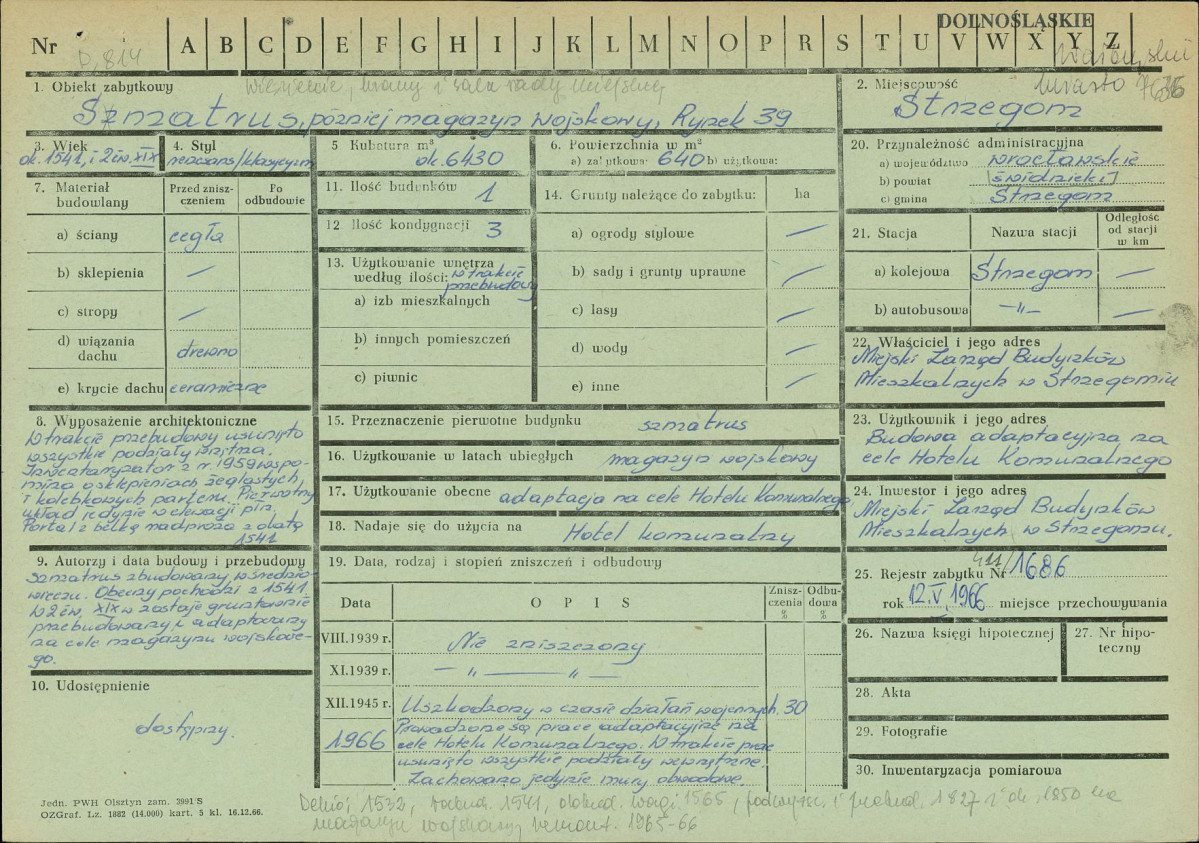 DOLNOŚLĄSKIE
Nr A B C D E F G H I J K L M N O P R S T U V W X Y Z
miasto
1. Obiekt zabytkowy
Więzienie, i sala rady miejskiej
Szmatrus, później magazyn wojskowy, Rynek 39
2. Miejscowość
Strzegom
3. Wiek
ok. 1541, i 2 ćw. XIX
4. Styl
renesans/klasycyzm
5 Kubatura m³
ok. 6430
6. Powierzchnia w m²
a) za'ytkowa: 640 b) użytkowa:
20. Przynależność administracyjna
a) województwo wrocławskie
b) powiat [świdnicki]
c) gmina Strzegom
7. Materiał budowlany
Przed znisz-
czeniem
Po
odbudowie
a) ściany cegła
b) sklepienia —
c) stropy —
d) wiązania
dachu drewno
e) krycie dachu ceramiczne
11. Ilość budynków 1
12 Ilość kondygnacji 3
13. Użytkowanie wnętrza
według ilości: w trakcie
przebudowy
a) izb mieszkalnych
b) innych pomieszczeń
c) piwnic
14. Grunty należące do zabytku: ha
a) ogrody stylowe —
b) sady i grunty uprawne —
c) lasy —
d) wody —
e) inne —
21. Stacja Nazwa stacji
Odległość
od stacji
w km
a) kolejowa Strzegom —
b) autobusowa -„- —
22. Właściciel i jego adres
Miejski Zarząd Budynków
Mieszkalnych w Strzegomiu
8. Wyposażenie architektoniczne
W trakcie przebudowy usunięto
wszystkie podziały wnętrza.
Inwentaryzator z r 1959 wspo-
mina o sklepieniach żeglastych,
i kolebkowych parteru. Pierwotny
układ jedynie w elewacji płn.
Portal z belką nadproża z datą
1541
15. Przeznaczenie pierwotne budynku szmatrus
16. Użytkowanie w latach ubiegłych magazyn wojskowy
17. Użytkowanie obecne adaptacja na cele Hotelu Komunalnego
18. Nadaje się do użycia na Hotel komunalny
23. Użytkownik i jego adres
Budowa adaptacyjna na
cele Hotelu Komunalnego
24. Inwestor i jego adres
Miejski Zarząd Budynków
Mieszkalnych w Strzegomiu.
9. Autorzy i data budowy i przebudowy
Szmatrus zbudowany w średnio-
wieczu. Obecny pochodzi z 1541.
W 2 ćw. XIX w zostaje gruntownie
przebudowany i adaptowany
na cele magazynu wojskowe-
go.
10. Udostępnienie
dostępny.
19. Data, rodzaj i stopień zniszczeń i odbudowy
Data OPIS
Znisz-
czenia
%
Odbu-
dowa
%
VIII.1939 r. Nie zniszczony
XI.1939 r. — „ — „ —
XII.1945 r. Uszkodzony w czasie działań wojennych. 30
1966 Prowadzone są prace adaptacyjne na
cele Hotelu Komunalnego. W trakcie prac
usunięto wszystkie podziały wewnętrzne.
Zachowano jedynie mury obwodowe.
25. Rejestr zabytku Nr 411/1686
rok 12.V.1966 miejsce przechowywania
26. Nazwa księgi hipotecznej
27. Nr hipo-
teczny
28. Akta
29. Fotografie
30. Inwentaryzacja pomiarowa
Jedn. PWH Olsztyn zam. 3991 S
OZGraf. Lz. 1882 (14.000) kart. 5 kl. 16.12.66.
1532, 1541, dobud. wagi 1565, i przebud. 1827 i ok. 1850 na
magazyn wojskowy, remont. 1965-66